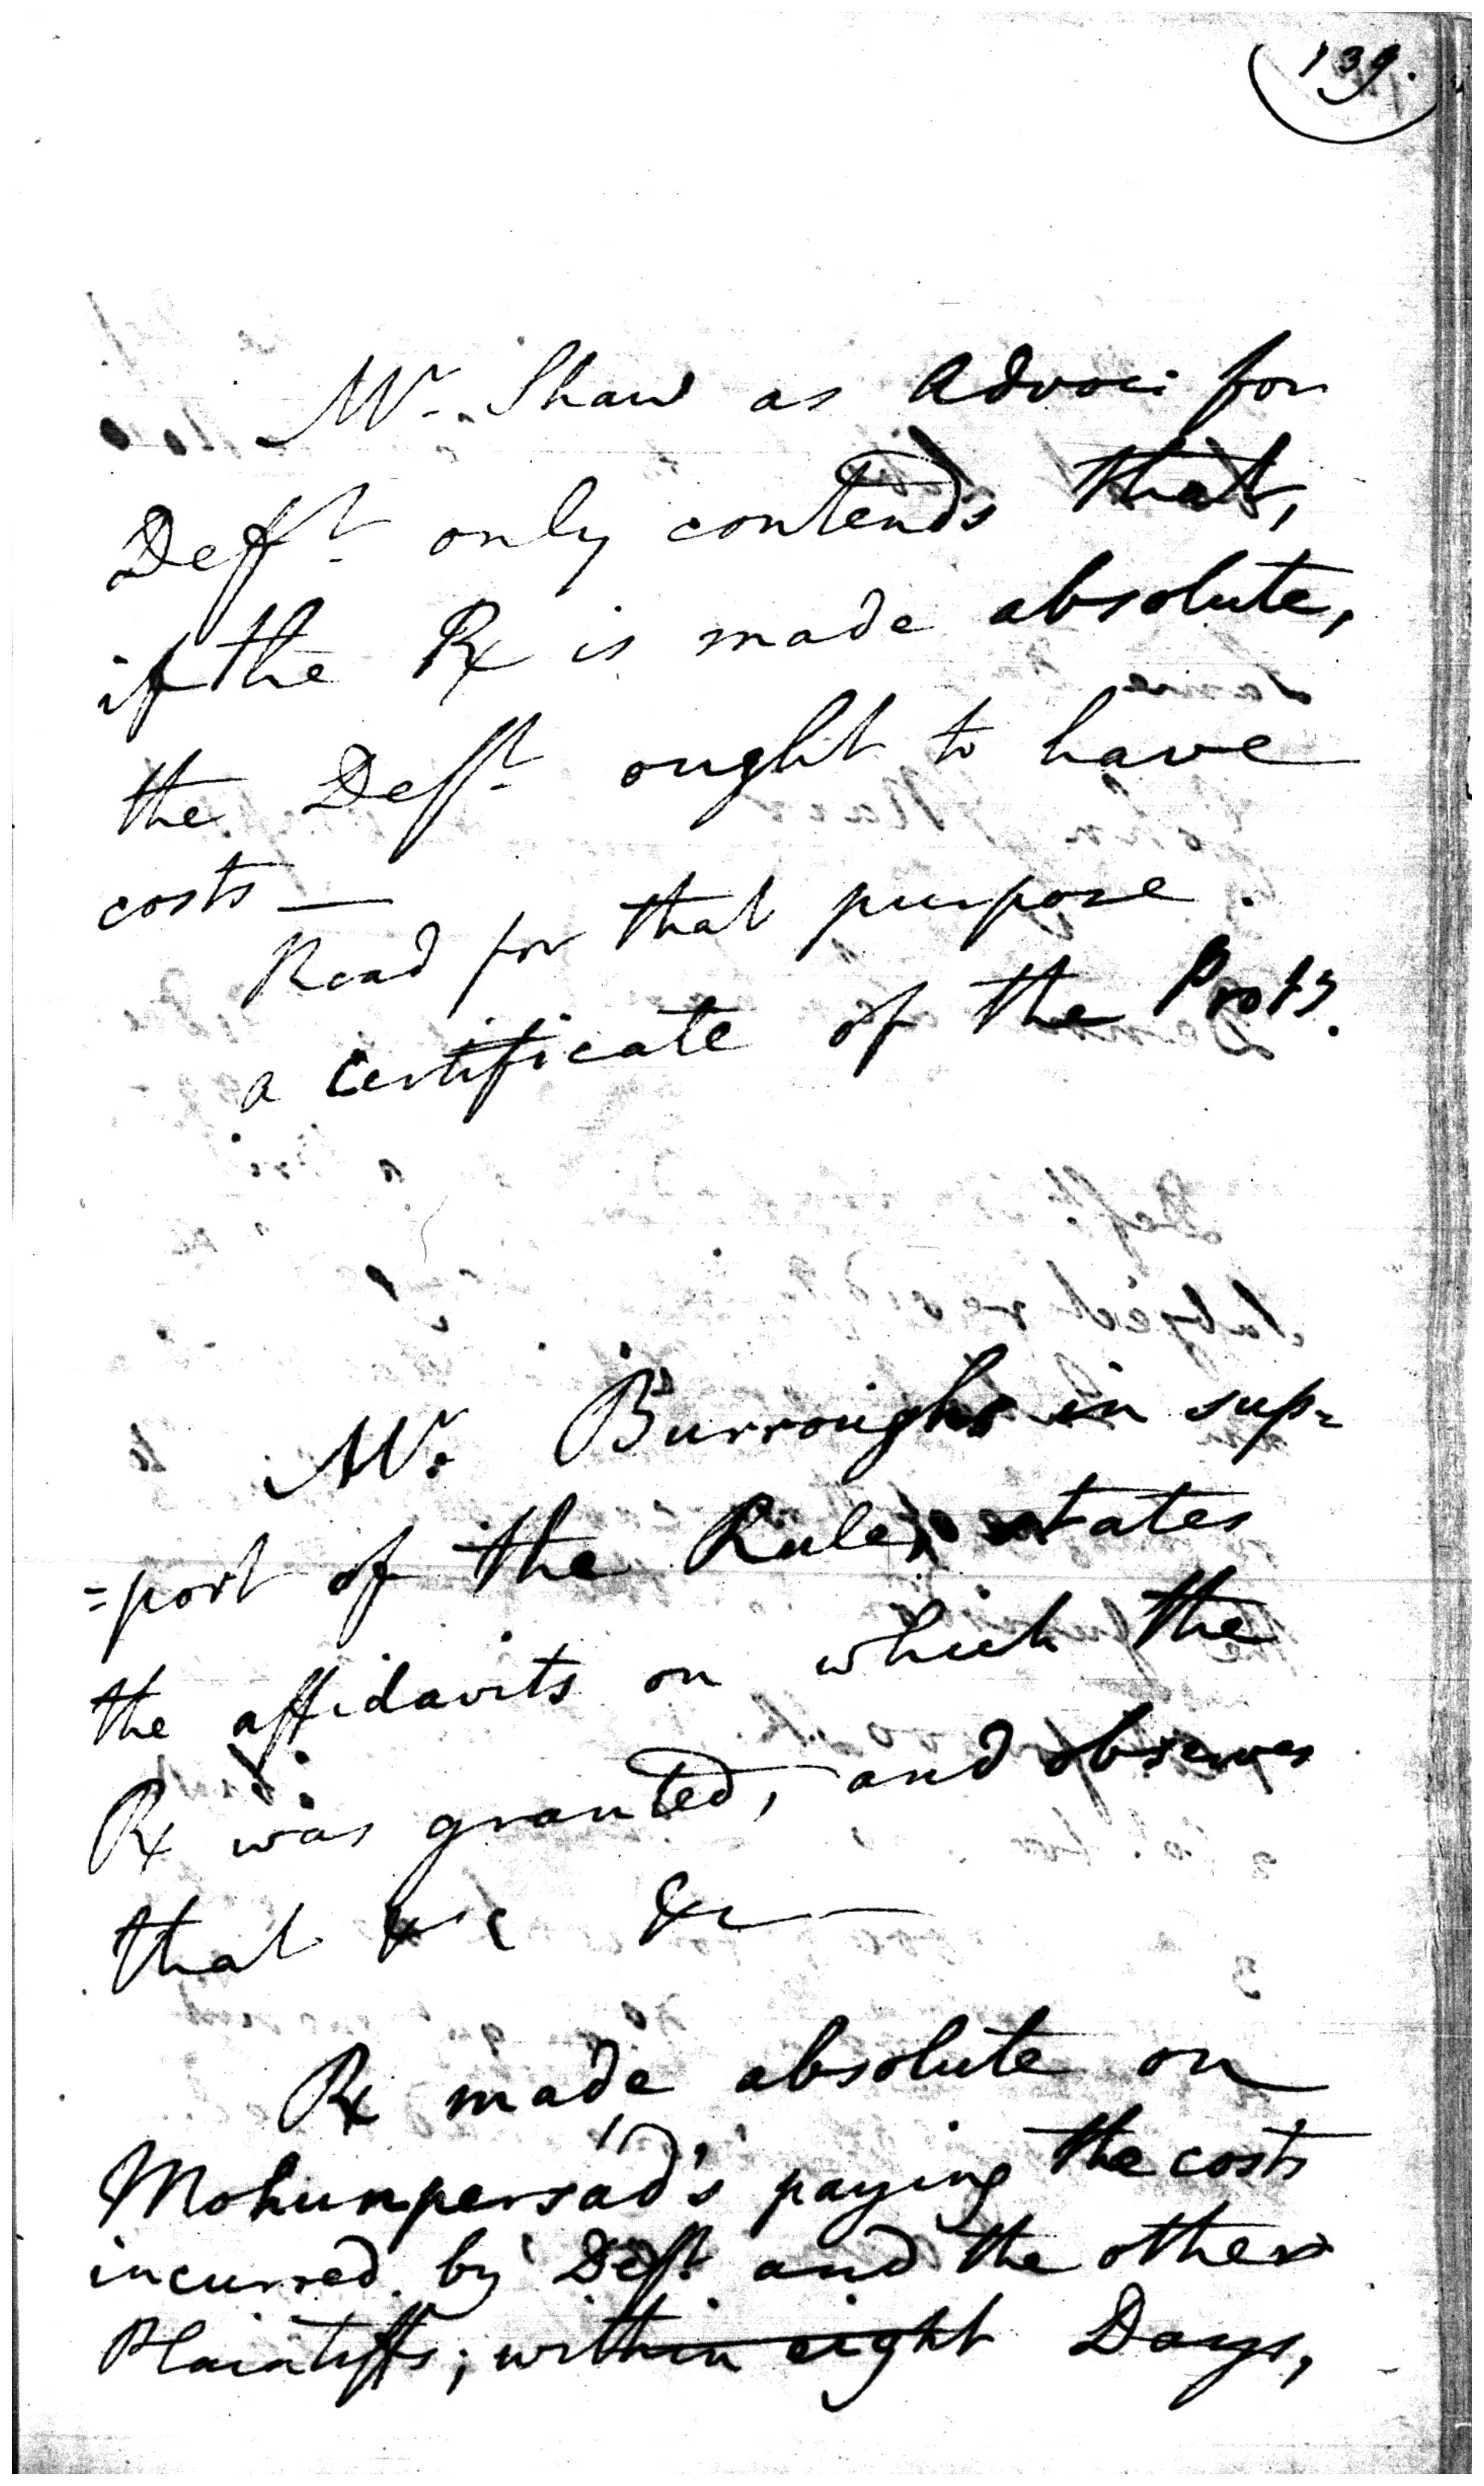 139.
Mr. Shaw as Advoc: for
Defft. only contends that,
if the Rx is made absolute,
the Defft. ought to have
costs —
Read for that purpose.
a Certificate of the Proty.
Mr. Burroughs in sup=
=port of the Rule, states
the affidavits on which the
Rx was granted, and observes
that &c &c —
Rx made absolute on
Mohunpersad's paying the costs
incurred by Deft. and the other
Plaintiffs; within eight Days,